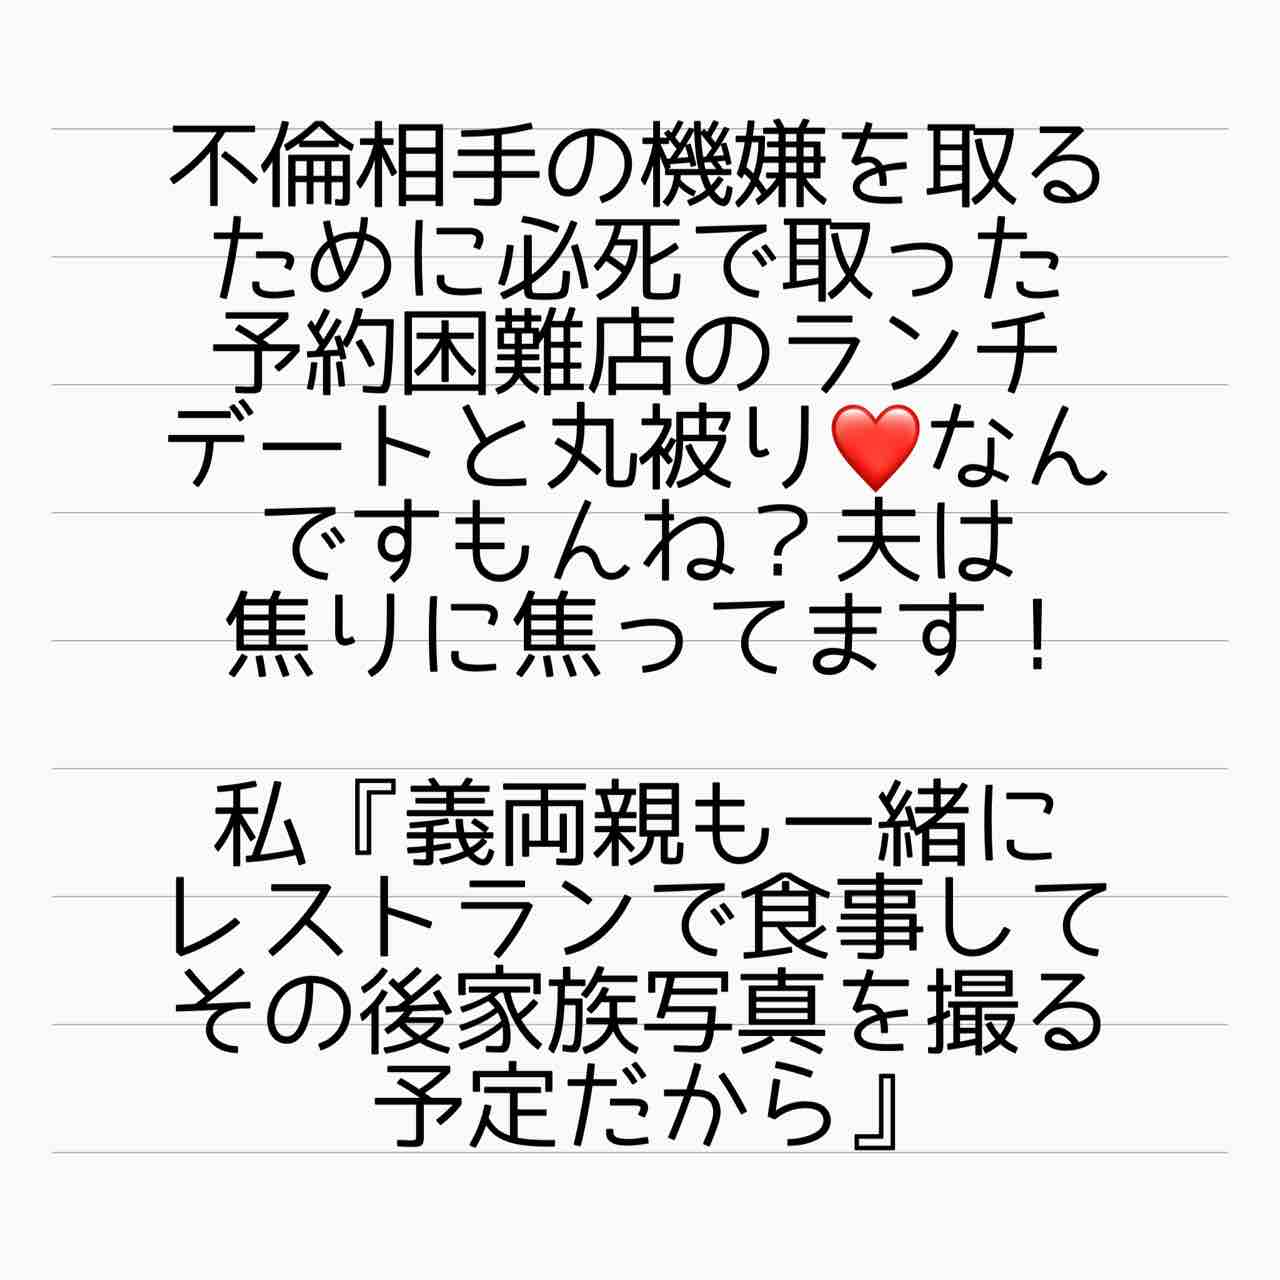 不倫相手の機嫌を取る
ために必死で取った
予約困難店のランチ
デートと丸被り❤️なん
ですもんね？夫は
焦りに焦ってます！
私『義両親も一緒に
レストランで食事して
その後家族写真を撮る
予定だから』